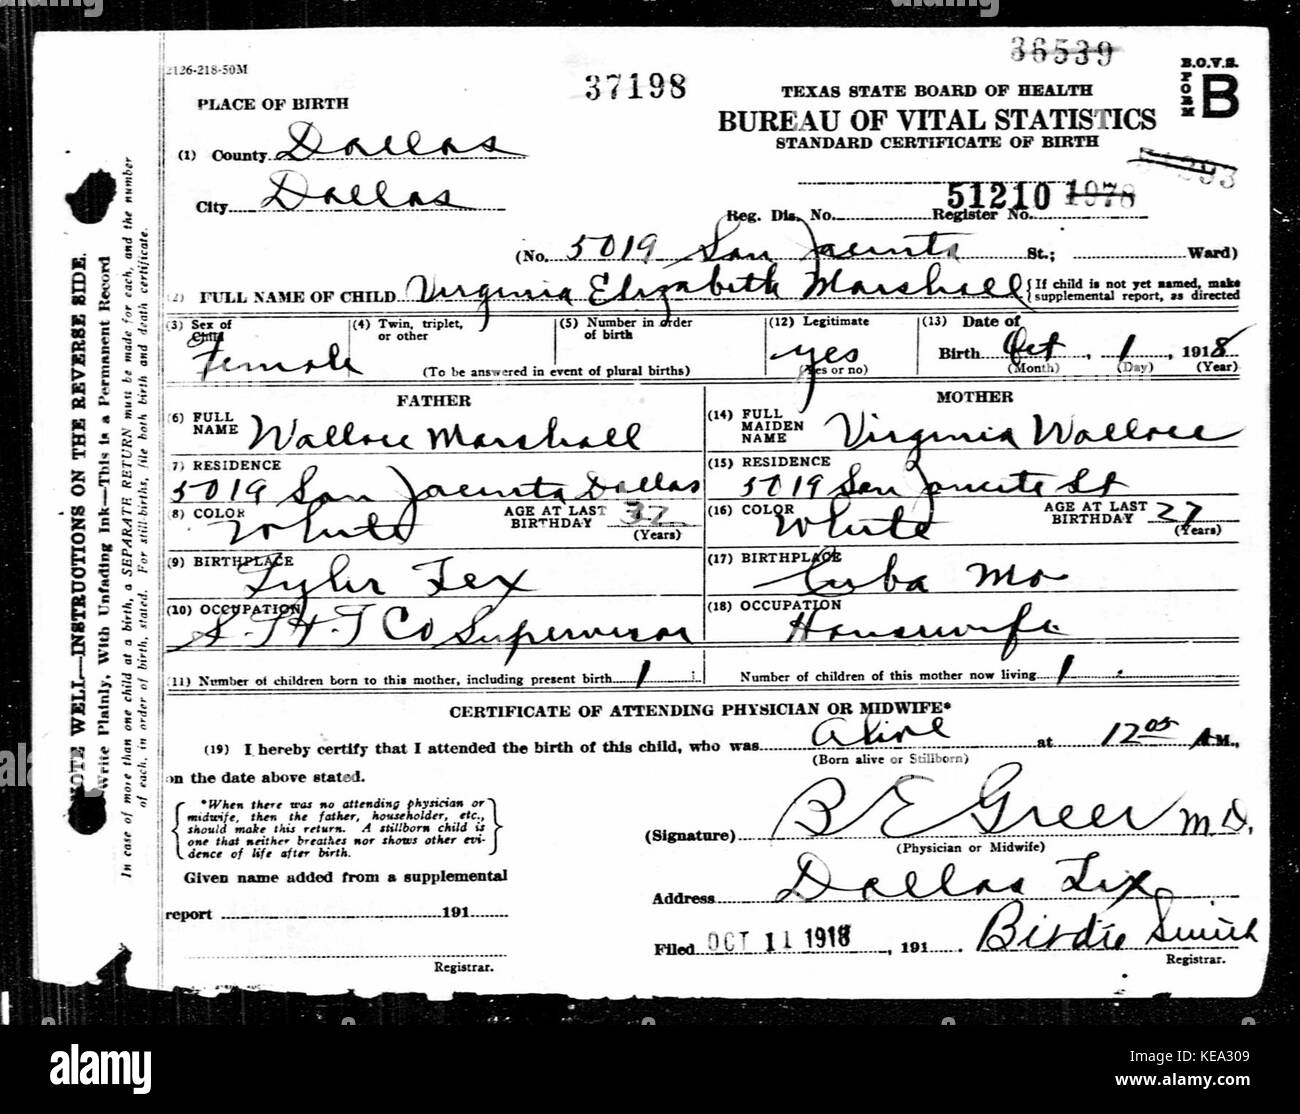 2126-218-50M
36539
37198
B.O.V.S.
FORM B
TEXAS STATE BOARD OF HEALTH
BUREAU OF VITAL STATISTICS
STANDARD CERTIFICATE OF BIRTH
PLACE OF BIRTH
(1) County Dallas
City Dallas
51210 1978
Reg. Dis. No. Register No.
(No. 5019 San Jacinto St.; Ward)
(2) FULL NAME OF CHILD Virginia Elizabeth Marshall { If child is not yet named, make
supplemental report, as directed
(3) Sex of
Child
Female
(4) Twin, triplet,
or other
(5) Number in order
of birth
(To be answered in event of plural births)
(12) Legitimate
yes
(Yes or no)
(13) Date of
Birth Oct, 1, 1918
(Month) (Day) (Year)
FATHER
(6) FULL
NAME Wallace Marshall
7) RESIDENCE
5019 San Jacinto Dallas
(8) COLOR White AGE AT LAST
BIRTHDAY 32
(Years)
(9) BIRTHPLACE
Tyler Tex
(10) OCCUPATION
S. T & T Co Supervisor
MOTHER
(14) FULL
MAIDEN
NAME Virginia Wallace
(15) RESIDENCE
5019 San Jacinto St
(16) COLOR White AGE AT LAST
BIRTHDAY 27
(Years)
(17) BIRTHPLACE
Cuba Mo
(18) OCCUPATION
Housewife
(11) Number of children born to this mother, including present birth 1
Number of children of this mother now living 1
CERTIFICATE OF ATTENDING PHYSICIAN OR MIDWIFE*
(19) I hereby certify that I attended the birth of this child, who was Alive at 12 05 A M.,
(Born alive or Stillborn)
on the date above stated.
{ *When there was no attending physician or
midwife, then the father, householder, etc.,
should make this return. A stillborn child is
one that neither breathes nor shows other evi-
dence of life after birth. }
Given name added from a supplemental
report 191
Registrar.
(Signature) B E Greer M.D.
(Physician or Midwife)
Address Dallas Tex
Filed OCT 11 1918, 191 . Birdie Smith
Registrar.
NOTE WELL—INSTRUCTIONS ON THE REVERSE SIDE.
Write Plainly, With Unfading Ink—This is a Permanent Record
In case of more than one child at a birth, a SEPARATE RETURN must be made for each, and the number
of each, in order of birth, stated. For still-births, file both birth and death certificate.
alamy
alamy
alamy
Image ID: KEA309
www.alamy.com